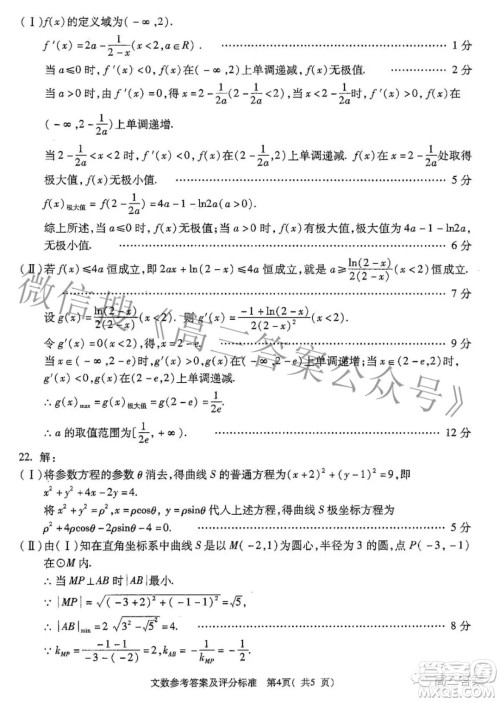 (Ⅰ)f(x)的定义域为(-∞,2).
f′(x)=2a-1/(2-x)(x<2,a∈R). ………… 1分
当a≤0时,f′(x)<0,f(x)在(-∞,2)上单调递减,f(x)无极值. ………… 2分
当a>0时,由f′(x)=0,得x=2-1/(2a)(2-1/(2a)<2),当x<2-1/(2a)时,f′(x)>0,f(x)
在(-∞,2-1/(2a))上单调递增.
当2-1/(2a)<x<2时,f′(x)<0,f(x)在(2-1/(2a),2)上单调递减,f(x)在x=2-1/(2a)处取得
极大值,f(x)无极小值. ………… 5分
f(x)极大值=f(2-1/(2a))=4a-1-ln2a(a>0).
综上所述,当a≤0时,f(x)无极值,当a>0时,f(x)有极大值,极大值为4a-1-ln2a,
无极小值. ………… 6分
(Ⅱ)若f(x)≤4a恒成立,即2ax+ln(2-x)≤4a恒成立,就是a≥ln(2-x)/(2(2-x))恒成立.
………… 7分
设g(x)=ln(2-x)/(2(2-x))(x<2),则g′(x)=(-1+ln(2-x))/(2(2-x)²)
令g′(x)=0,得x=2-e. ………… 9分
当x∈(-∞,2-e)时,g′(x)>0,g(x)在(-∞,2-e)上单调递增;当x∈(2-e,2)时,
g′(x)<0,g(x)在(2-e,2)上单调递减.
∴g(x)max=g(x)极大值=g(2-e)=1/(2e).
∴a的取值范围为[1/(2e),+∞). ………… 12分
22. 解:
(Ⅰ)将参数方程的参数θ消去,得曲线S的普通方程为(x+2)²+(y-1)²=9,即
x²+y²+4x-2y=4.
将x²+y²=ρ²,x=ρcosθ,y=ρsinθ代入上述方程,得曲线S的极坐标方程为
ρ²+4ρcosθ-2ρsinθ-4=0. ………… 5分
(Ⅱ)由(Ⅰ)知在直角坐标系中曲线S是以M(-2,1)为圆心,半径为3的圆,点P(1,0)
在⊙M内.
∴当MP⊥AB时|AB|最小.
∵|MP|=√((-3+2)²+(-1-1)²)=√5,
∴|AB|min=2√(3²-√5²)=4. ………… 8分
∵kMP=(-1-1)/(-3+2)=2,kAB=-1/kMP=-1/2,
文数参考答案及评分标准 第4页(共5页)
微信搜《高三答案公众号》